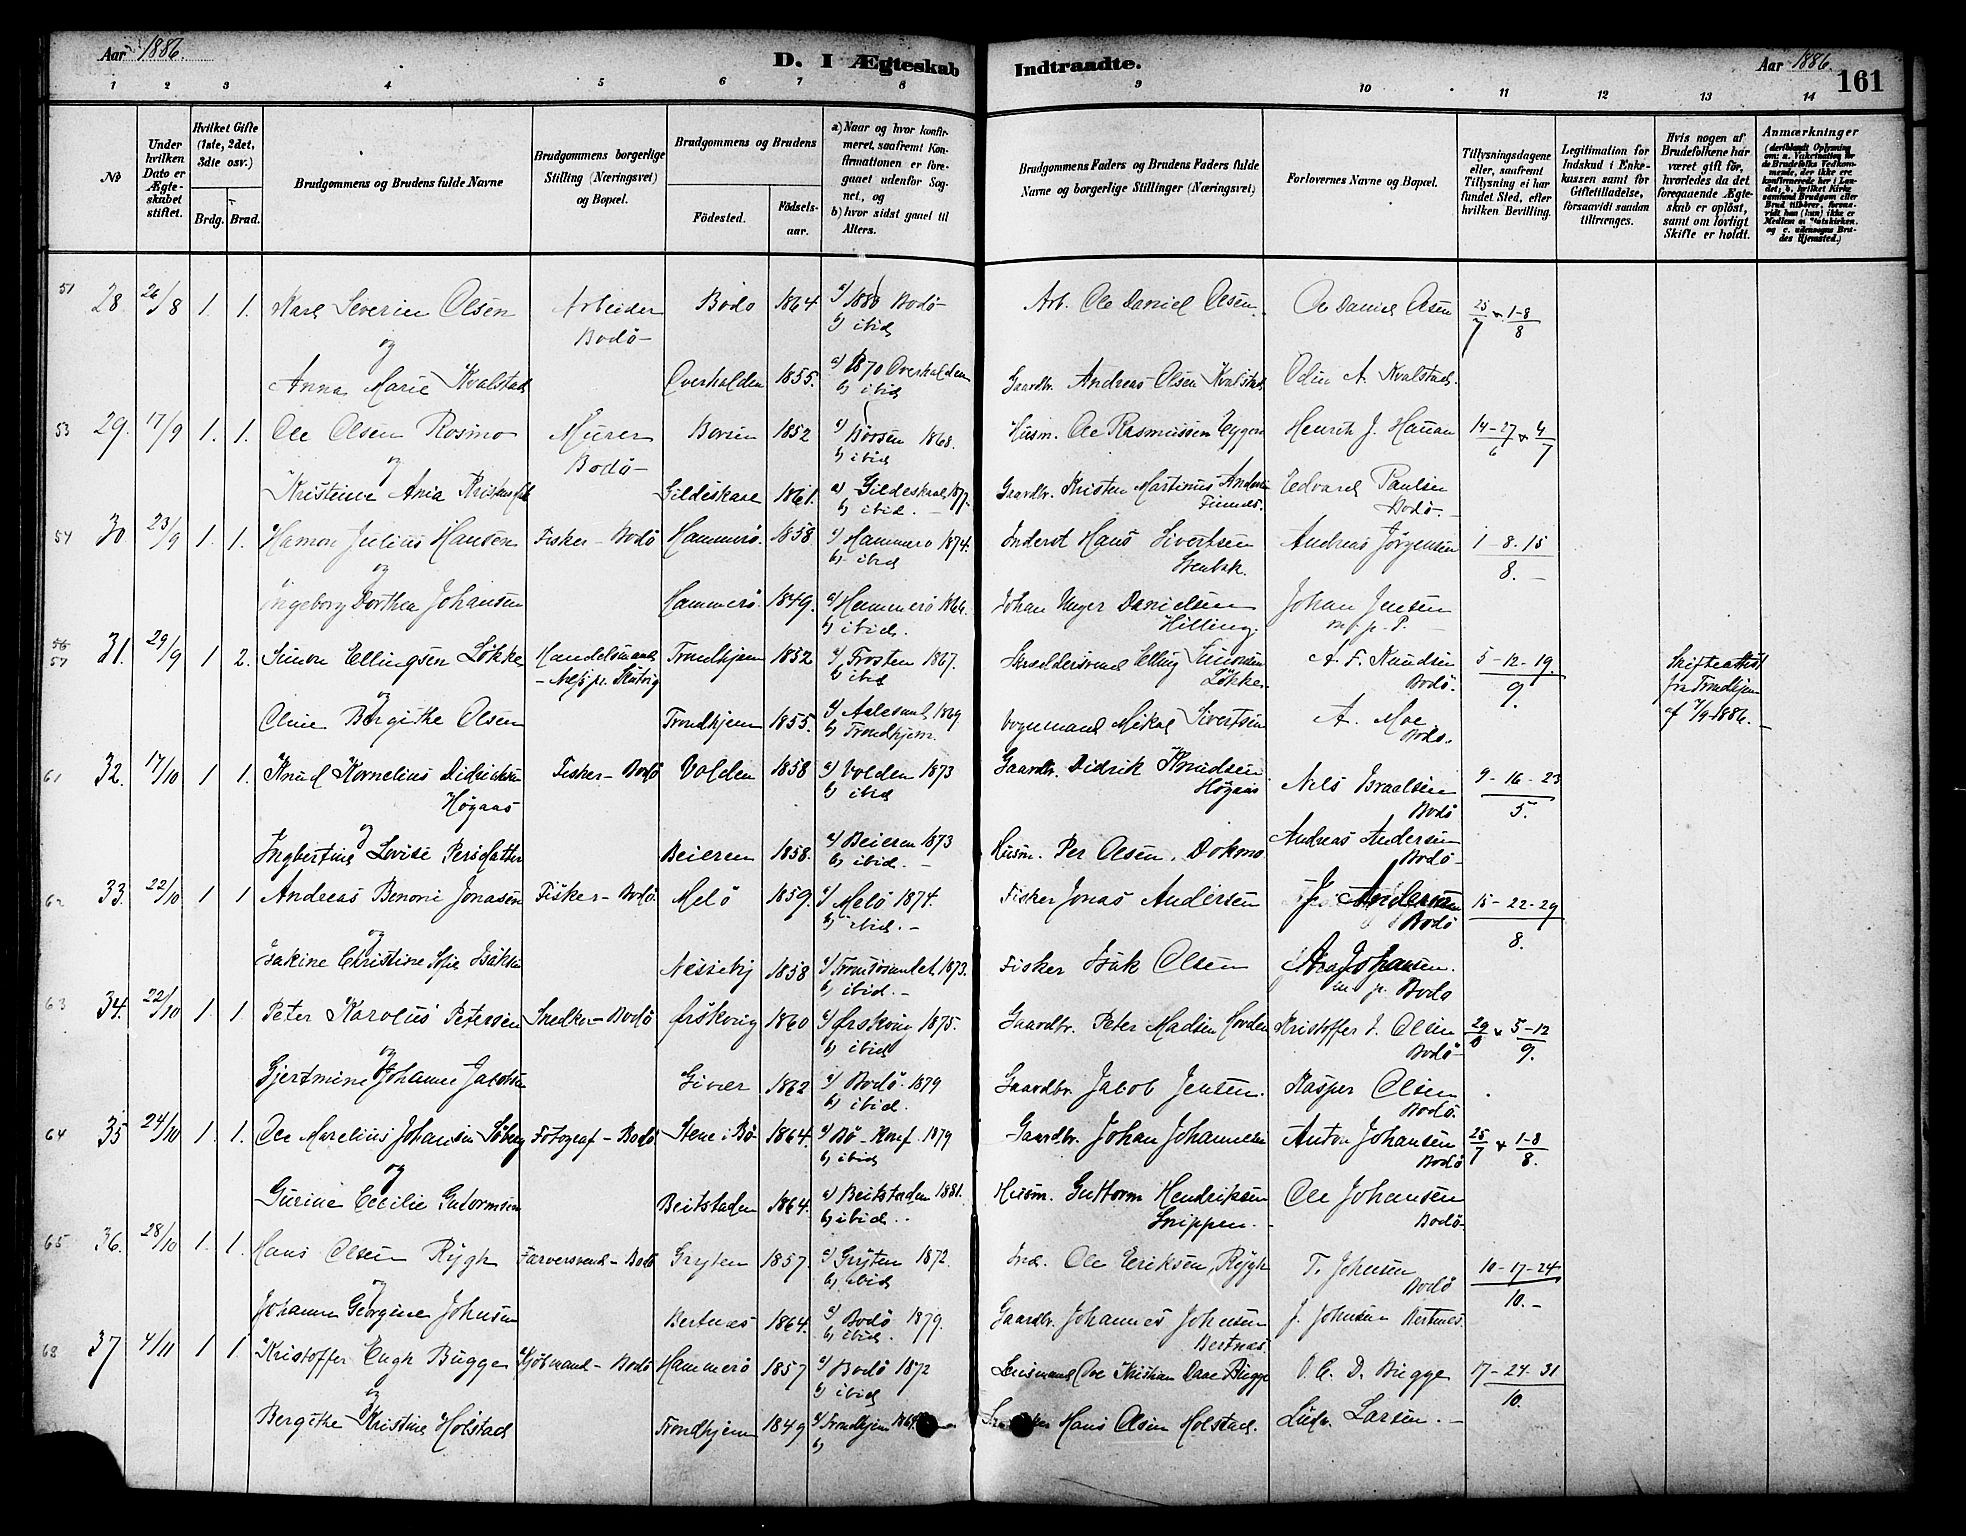 Aar 1886.
D. I Ægteskab Indtraadte.
Aar 1886.
161
1 2 3 4 5 6 7 8 9 10 11 12 13 14
No
Under hvilken Dato er Ægteskabet stiftet.
Hvilket Gifte (1ste, 2det, 3die osv.)
Brdg. Brud.
Brudgommens og Brudens fulde Navne
Brudgommens borgerlige Stilling (Næringsvei) og Bopæl.
Brudgommens og Brudens
Födested. Födselsaar.
a) Naar og hvor konfirmeret, saafremt Konfirmationen er foregaaet udenfor Sognet, og
b) hvor sidst gaaet til Alters.
Brudgommens Faders og Brudens Faders fulde Navne og borgerlige Stillinger (Næringsvei)
Forlovernes Navne og Bopæl.
Tillysningsdagene eller, saafremt Tillysning ei har fundet Sted, efter hvilken Bevilling.
Legitimation for Indskud i Enkekassen samt for Giftetilladelse, forsaavidt saadan tiltrænges.
Hvis nogen af Brudefolkene har været gift för, hvorledes da det foregaaende Ægteskab er oplöst, samt om lovligt Skifte er holdt.
Anmærkninger
51 28. 26/8 1. 1. Karl Severin Olsen Arbeider Bodö Bodö 1864 a) 1880 Bodö b) ibid Arb. Ole Daniel Olsen. Ole Daniel Olsen 25/7 + 1-8/8
og
Anna Marie Kvalstad Overhalden 1855. a) 1870 Overhalden b) ibid Gaardbr. Andreas Olsen Kvalstad. Odin A. Kvalstad.
53 29. 17/9 1. 1. Ole Olsen Rosmo Murer Bodö Borsen 1852 a) Börsen 1868. b) ibid Husm. Ole Rasmussen Henrik J. Hauan 14-27/6 + 4/7
og
Kristine Ania Gildeskaal 1861. a) Gildeskaal 1877. b) ibid. Gaardbr. Kristen Martinus Andersen Edvard Paulsen Bodö.
54 30 23/9 1. 1. Hamon Julius Hansen Fisker - Bodö Hammerö. 1858 a) Hammerö 1874. b) ibid Inderst Hans Sivertsen Andreas Jörgensen 1-8-15/8.
og
Ingeborg Dorthea Johansen Hammerö. 1849. a) Hammerö 1864. b) ibid. Johan Unger Danielsen Hilling. Johan Jensen
56 57 31. 29/9 1 2. Simon Ellingsen Lökke Handelsmand Trondhjem 1852 a) Frosten 1867. b) ibid Elling Simonsen Lökke. A. F. Knudsen Bodö. 5-12-19/9. Skifteattest fra Trondhjem af 7/9 1886.
og
Oline Birgithe Olsen Trondhjem 1855. a) Aalesund 1869 b) Trondhjem. Vognmand Mikal Sivertsen A. Moe Bodö.
61 32. 17/10 1 1. Knud Kornelius Didriksen Högaas Fisker - Bodö Volden 1858 a) Volden 1873 b) ibid Gaardbr. Didrik Knudsen Högaas Nils Israelsen Bodö 9-16-23/5.
og
Ingbertine Lovise Persdatter Beieren 1858. a) Beieren 1873 b) ibid. Husm. Per Olsen. Dokmo Andreas Andersen Bodö
62 33. 22/10 1 1 Andreas Benoni Jonasen Fisker - Bodö. Melö 1859. a) Melö 1874. b) ibid. Fisker Jonas Andersen J. Andersen Bodö 15-22-29/8.
og
Isakine Christine Sofie Isaksen Nesseby 1858 a) Tromsösundet. 1873. b) ibid. Fisker Isak Olsen Johansen. Bodö
63 34. 22/10 1. 1. Peter Karolus Petersen Snedker - Bodö Ørskoug 1860 a) Ørskoug 1875. b) ibid Gaardbr. Peter Madsen Hovden Kristoffer J. Olsen Bodö 29/8 + 5-12/9.
og
Gjertmine Johanne Jacobsen Givær 1862 a) Bodö 1879 b) ibid. Gaardbr. Jacob Jensen. Kasper Olsen Bodö.
64 35 24/10 1. 1. Ole Marelius Johansen Söberg Fotograf - Bodö Stene i Bö 1864. a) Bö - Konf. 1879 b) ibid Gaardbr. Johan Johannesen Anton Johansen Bodö 25/7 + 1-8/8.
og
Gurine Cecilie Gutormsen Beitstaden 1864. a) Beitstaden 1881. b) ibid. Husm. Guttorm Hendriksen Snippen. Ole Johansen Bodö
65 36. 28/10 1. 1. Hans Olsen Rygh Farversvend - Bodö Gryten 1857. a) Gryten 1872. b) ibid Ind. Ole Eriksen Rygh T. Johnsen Bodö 10-17-24/10.
og
Johanne Georgine Johnsen Bertnæs 1864. a) Bodö 1879. b) ibid. Gaardbr. Johannes Johnsen Bertnæs. J. Johnsen Bertnes.
68 37 4/11 1 1 Kristoffer Engh Bugge Kjöbmand - Bodö Hammerö 1857 a) Bodö 1872 b) ibid Lensmand Ove Kristian Daae Bugge O. C. D. Bugge 17-24-31/10.
og
Bergithe Kristine Holstad Trondhjem 1849 a) Trondhjem b) Hans Olsen Holstad. Ludv. Larsen.